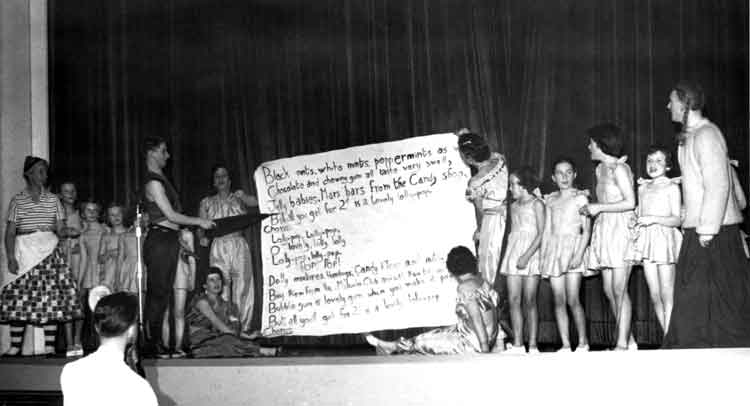 Black mints, white mints, peppermints as
Chocolate and chewing gum all taste very swell,
Jelly babies, Mars bars from the Candy shop,
But all you get for 2ᵈ is a lovely lolly-pop.
Chorus
Lolly-pop, Lolly-pop,
lovely, lolly, lolly
Lolly-pop, lolly-pop,
POP! POP!
Dolly mixtures, Candy
Buy them from the
Bubble gum is lovely gum when you make it
But all you get for 2ᵈ is a lovely lolly-pop
Chorus